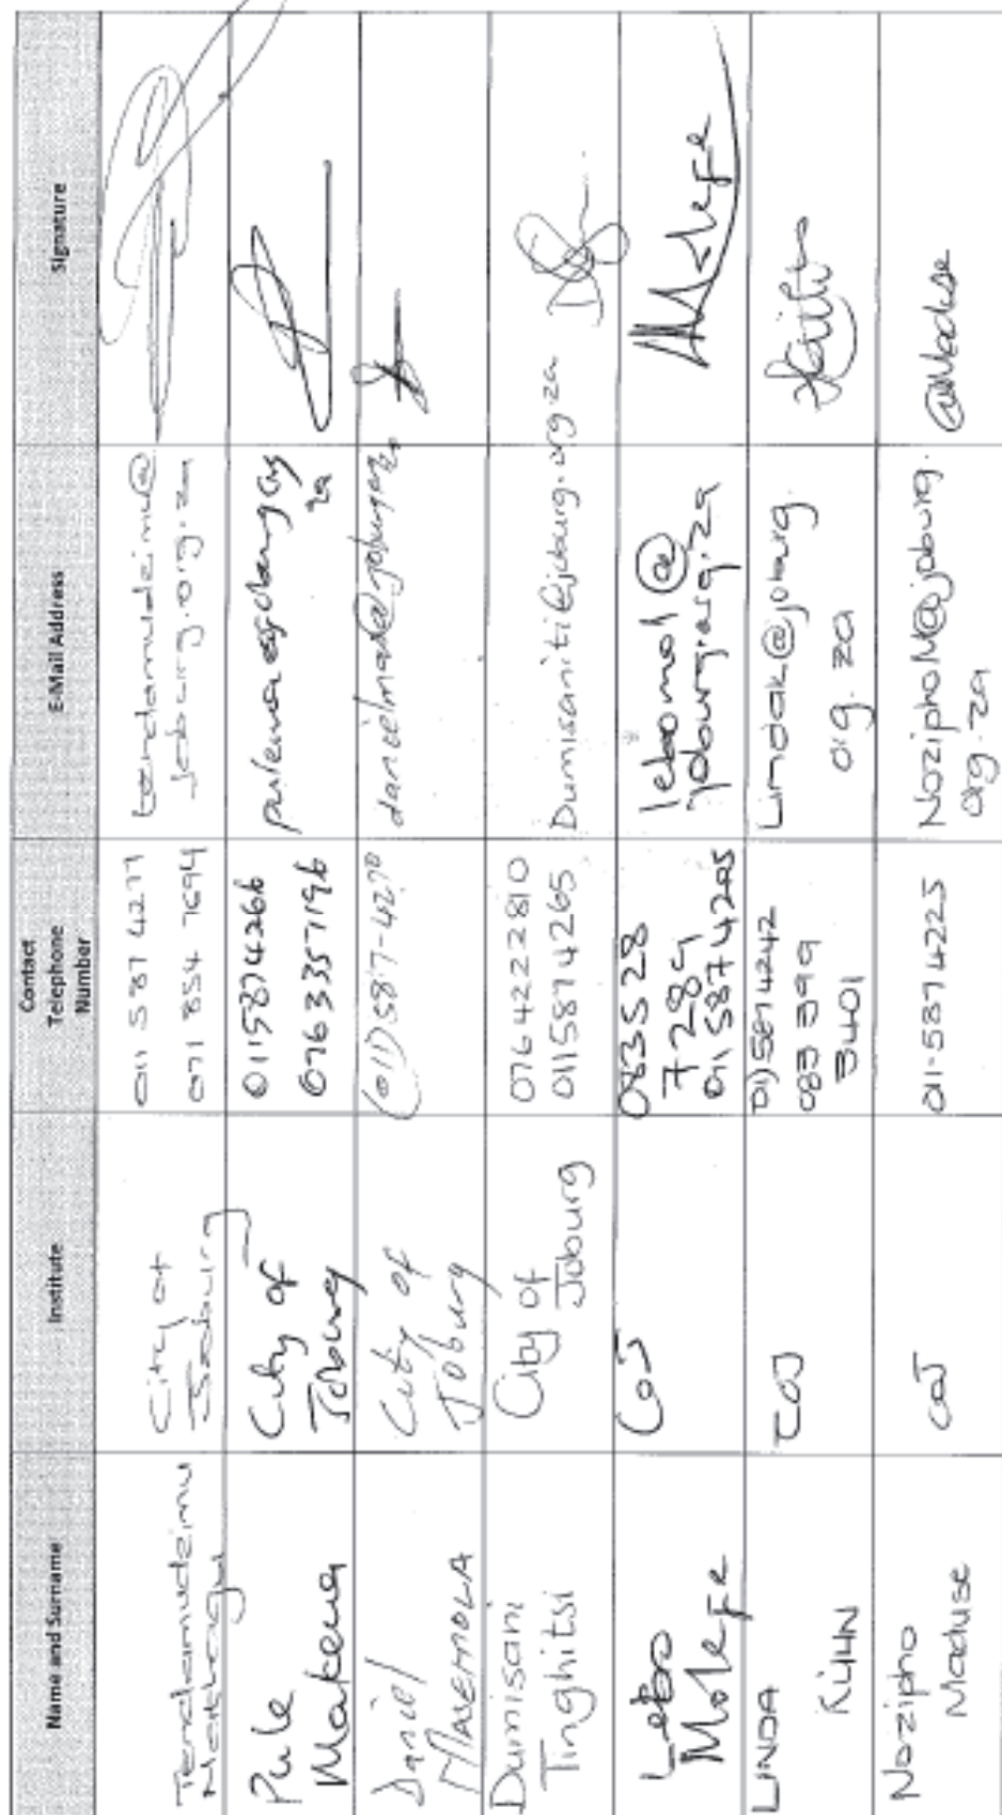 Name and Surname
Institute
Contact
Telephone
Number
E-Mail Address
Signature
Tendamudzimu
City of
Joburg
011 587 4277
071 854 7694
tendamudzimu@
joburg.org.za
Pule
Makena
City of
Joburg
0115874266
0763357196
za
Daniel
City of
Joburg
(011) 587-4270
Dumisani
Tinghitsi
City of
Joburg
0764222810
0115874265
Dumisaniti@joburg.org.za
Lebo
Molefe
CoJ
083528
7284
011 5874205
lebomol@
joburg.org.za
Molefe
LINDA
COJ
011)5874242
083 399
3401
Lindak@joburg.
org.za
Nozipho
Maduse
COJ
011-587 4225
NoziphoM@joburg.
org.za